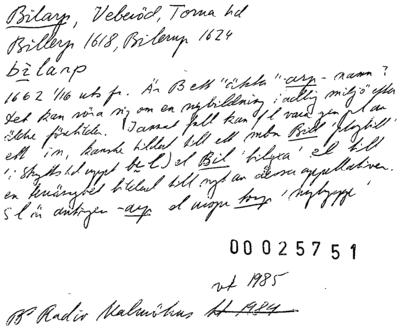 Bilarp, Veberöd, Torna hd
Billerp 1618, Bilerup 1624
bīlarp
1662 1/16 uts fr. Är B ett "äkta" -arp-namn?
Det kan röra sig om en nybildning i adlig miljö efter
äldre förebilder. I annat fall kan fl vara gen. av
ett in, kanske bildat till ett mbn Bill 'plogbill'
(i Skytts hd uppt bīl) el Bil 'bilyxa' el till
en terrängbet bildad till ngt av dessa appellativer.
Sl är antingen -arp el yngre torp 'nybygge'
00025751
vt 1985
BP Radio Malmöhus ht 1984